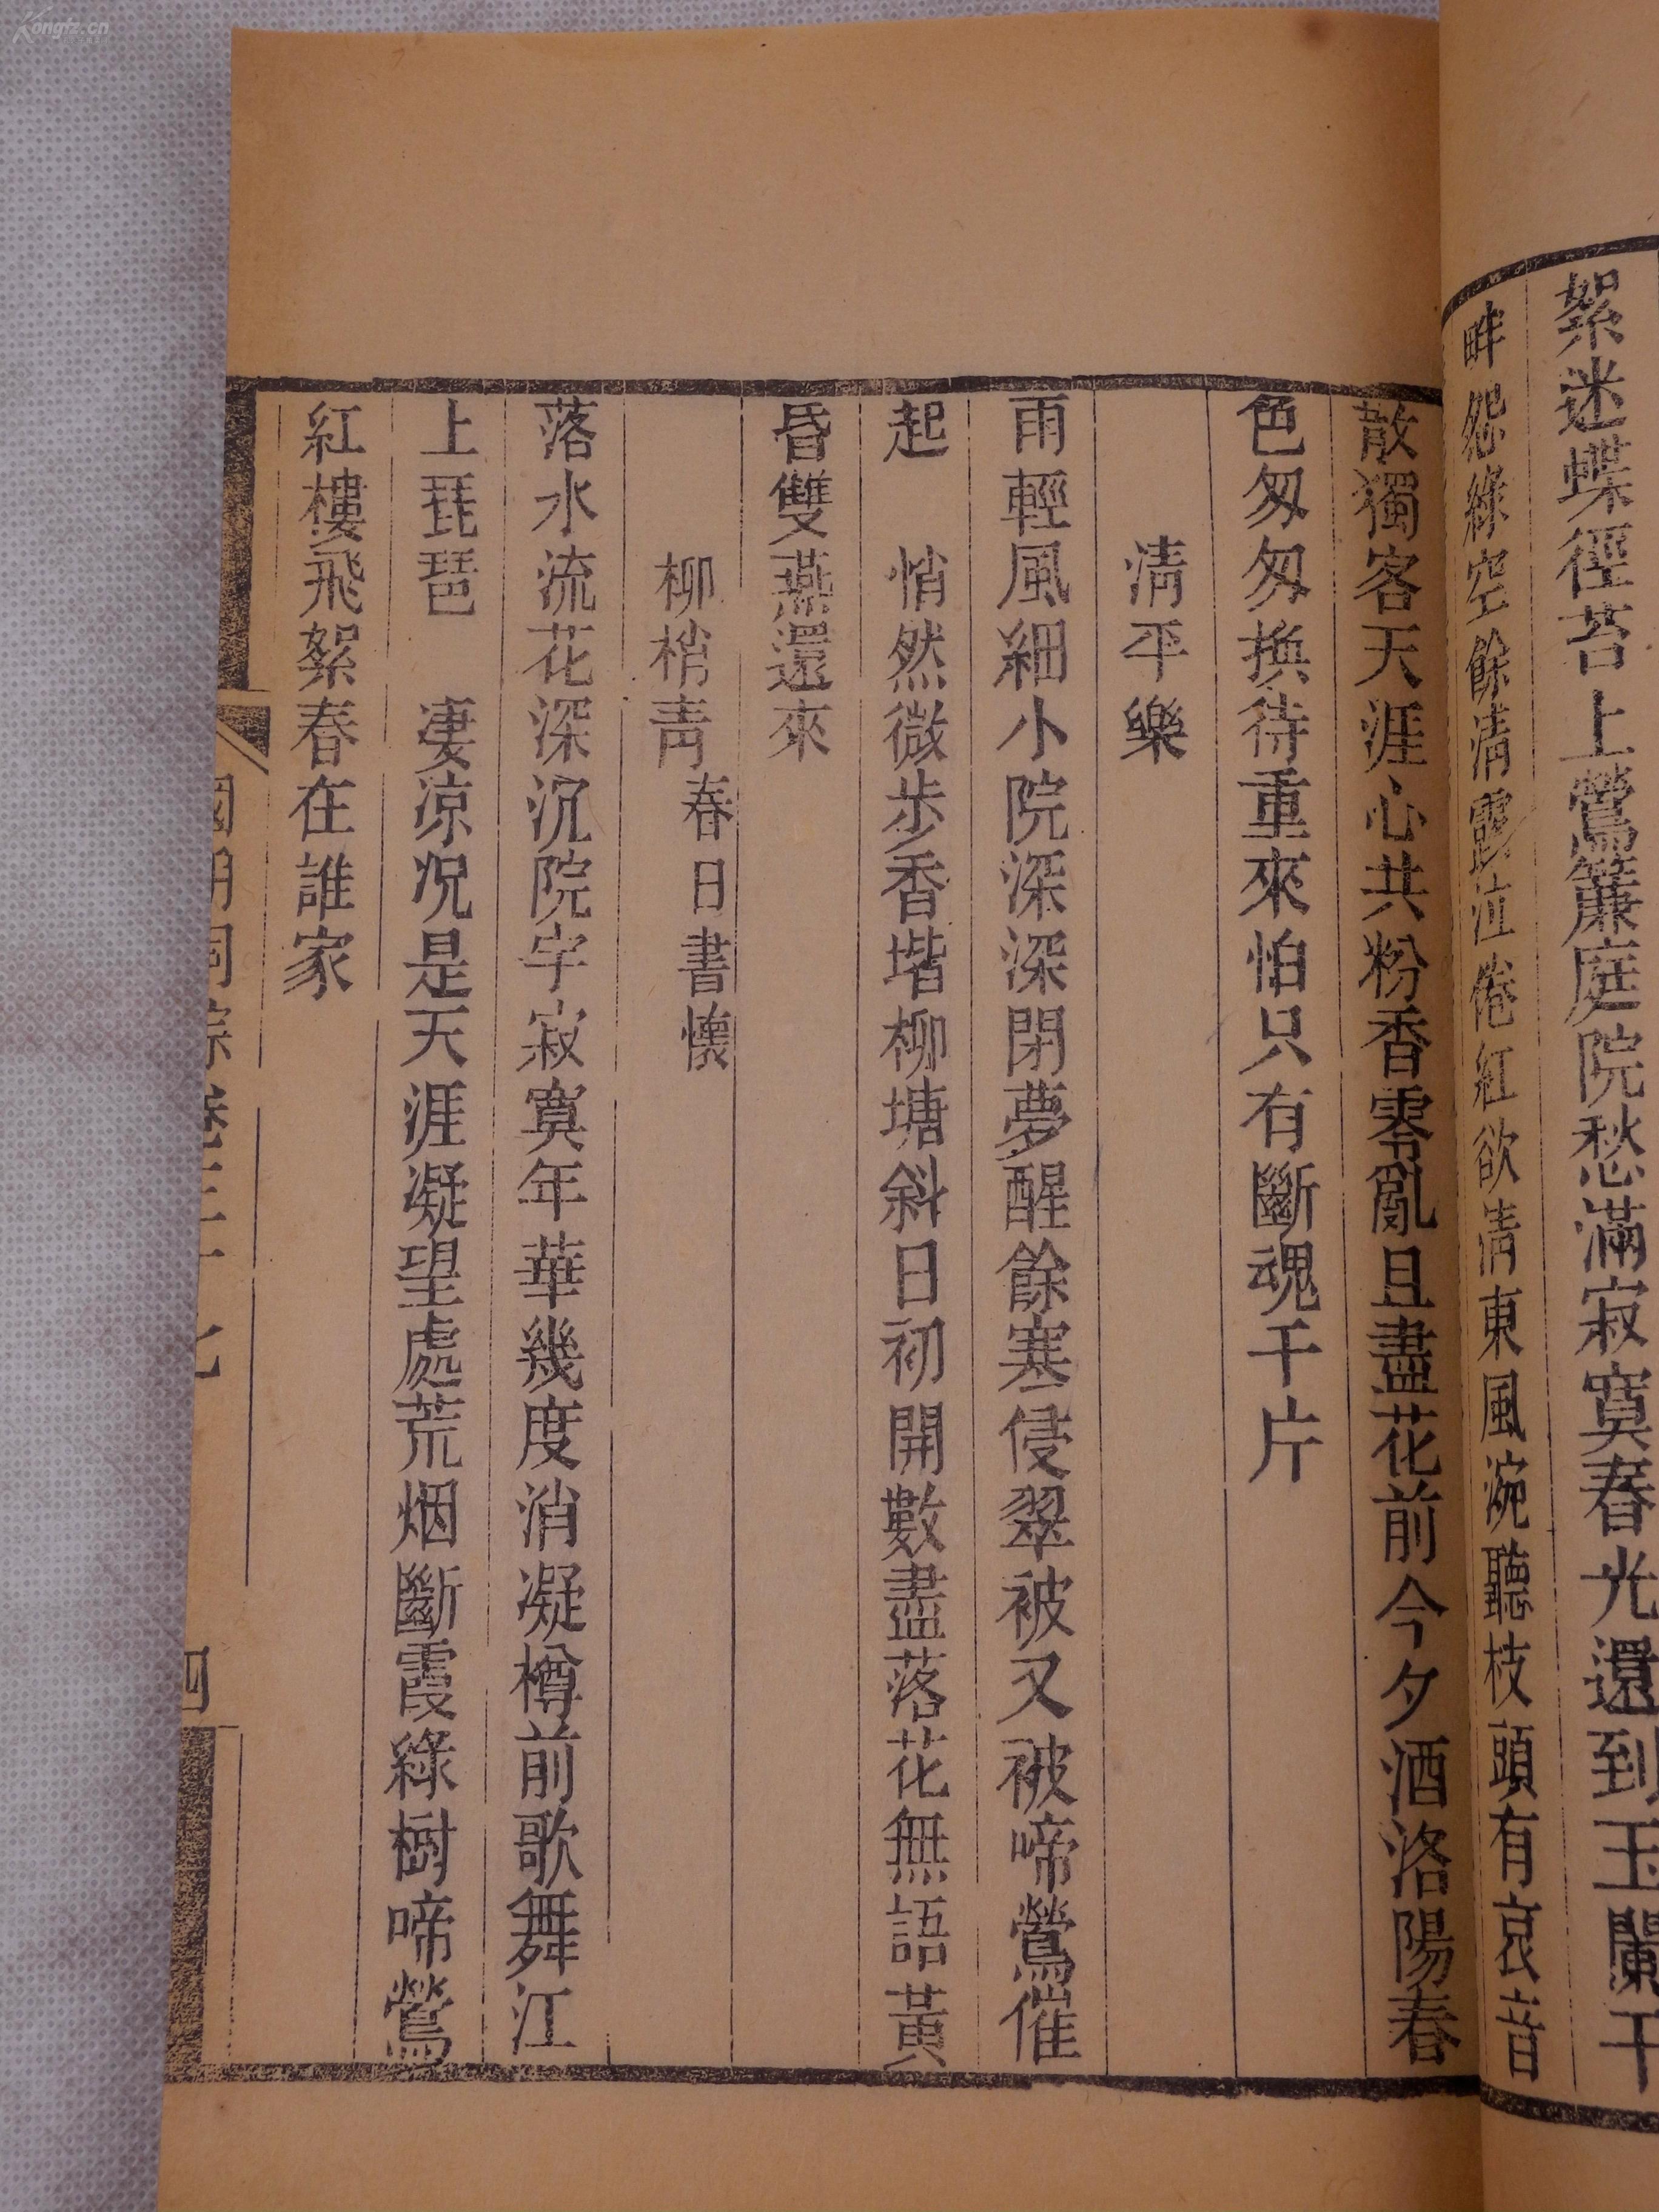 絮迷蝶徑苔上鶯簾庭院愁滿寂寞春光還到玉闌干
畔怨綠空餘清露泣倦紅欲凊東風涴聽枝頭有哀音
散獨客天涯心共粉香零亂且盡花前今夕酒洛陽春
色匆匆換待重來怕只有斷魂千片
淸平樂
雨輕風細小院深深閉夢醒餘寒侵翠被又被啼鶯催
起　悄然微步香堦柳塘斜日初開數盡落花無語黃
昏雙燕還來
柳梢靑 春日書懷
落水流花深沉院宇寂寞年華幾度消凝樽前歌舞江
上琵琶　凄涼况是天涯凝望處荒烟斷霞綠樹啼鶯
紅樓飛絮春在誰家
國朝詞綜卷三十七
四
Kongfz.cn